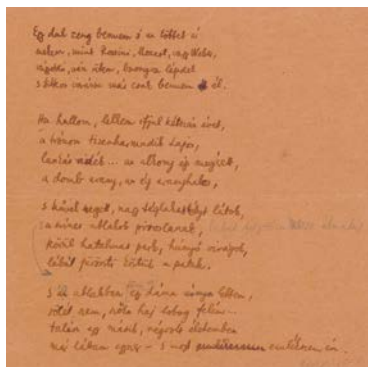 Egy dal zeng bennem s az többet ér
nekem, mint Rossini, Mozart, vagy Weber,
vén ütem, lépdel
s titkos varázsa már csak bennem él.
Ha hallom, lelkem ifjul kétszáz évet,
a trónon tizenharmadik Lajos,
lankás vidék... az alkony ép megérett,
a domb arany, az ég aranyhabos,
s kővel szegett, nagy téglakastélyt látok,
színes ablakok piroslanak,
körül hatalmas park, hunyó virágok,
lábát füröszti köztük a patak.
s az ablakban egy dáma lebben,
sötét haj lobog felém...
talán egy másik, életemben
már láttam egyszer – s most emlékezem én.